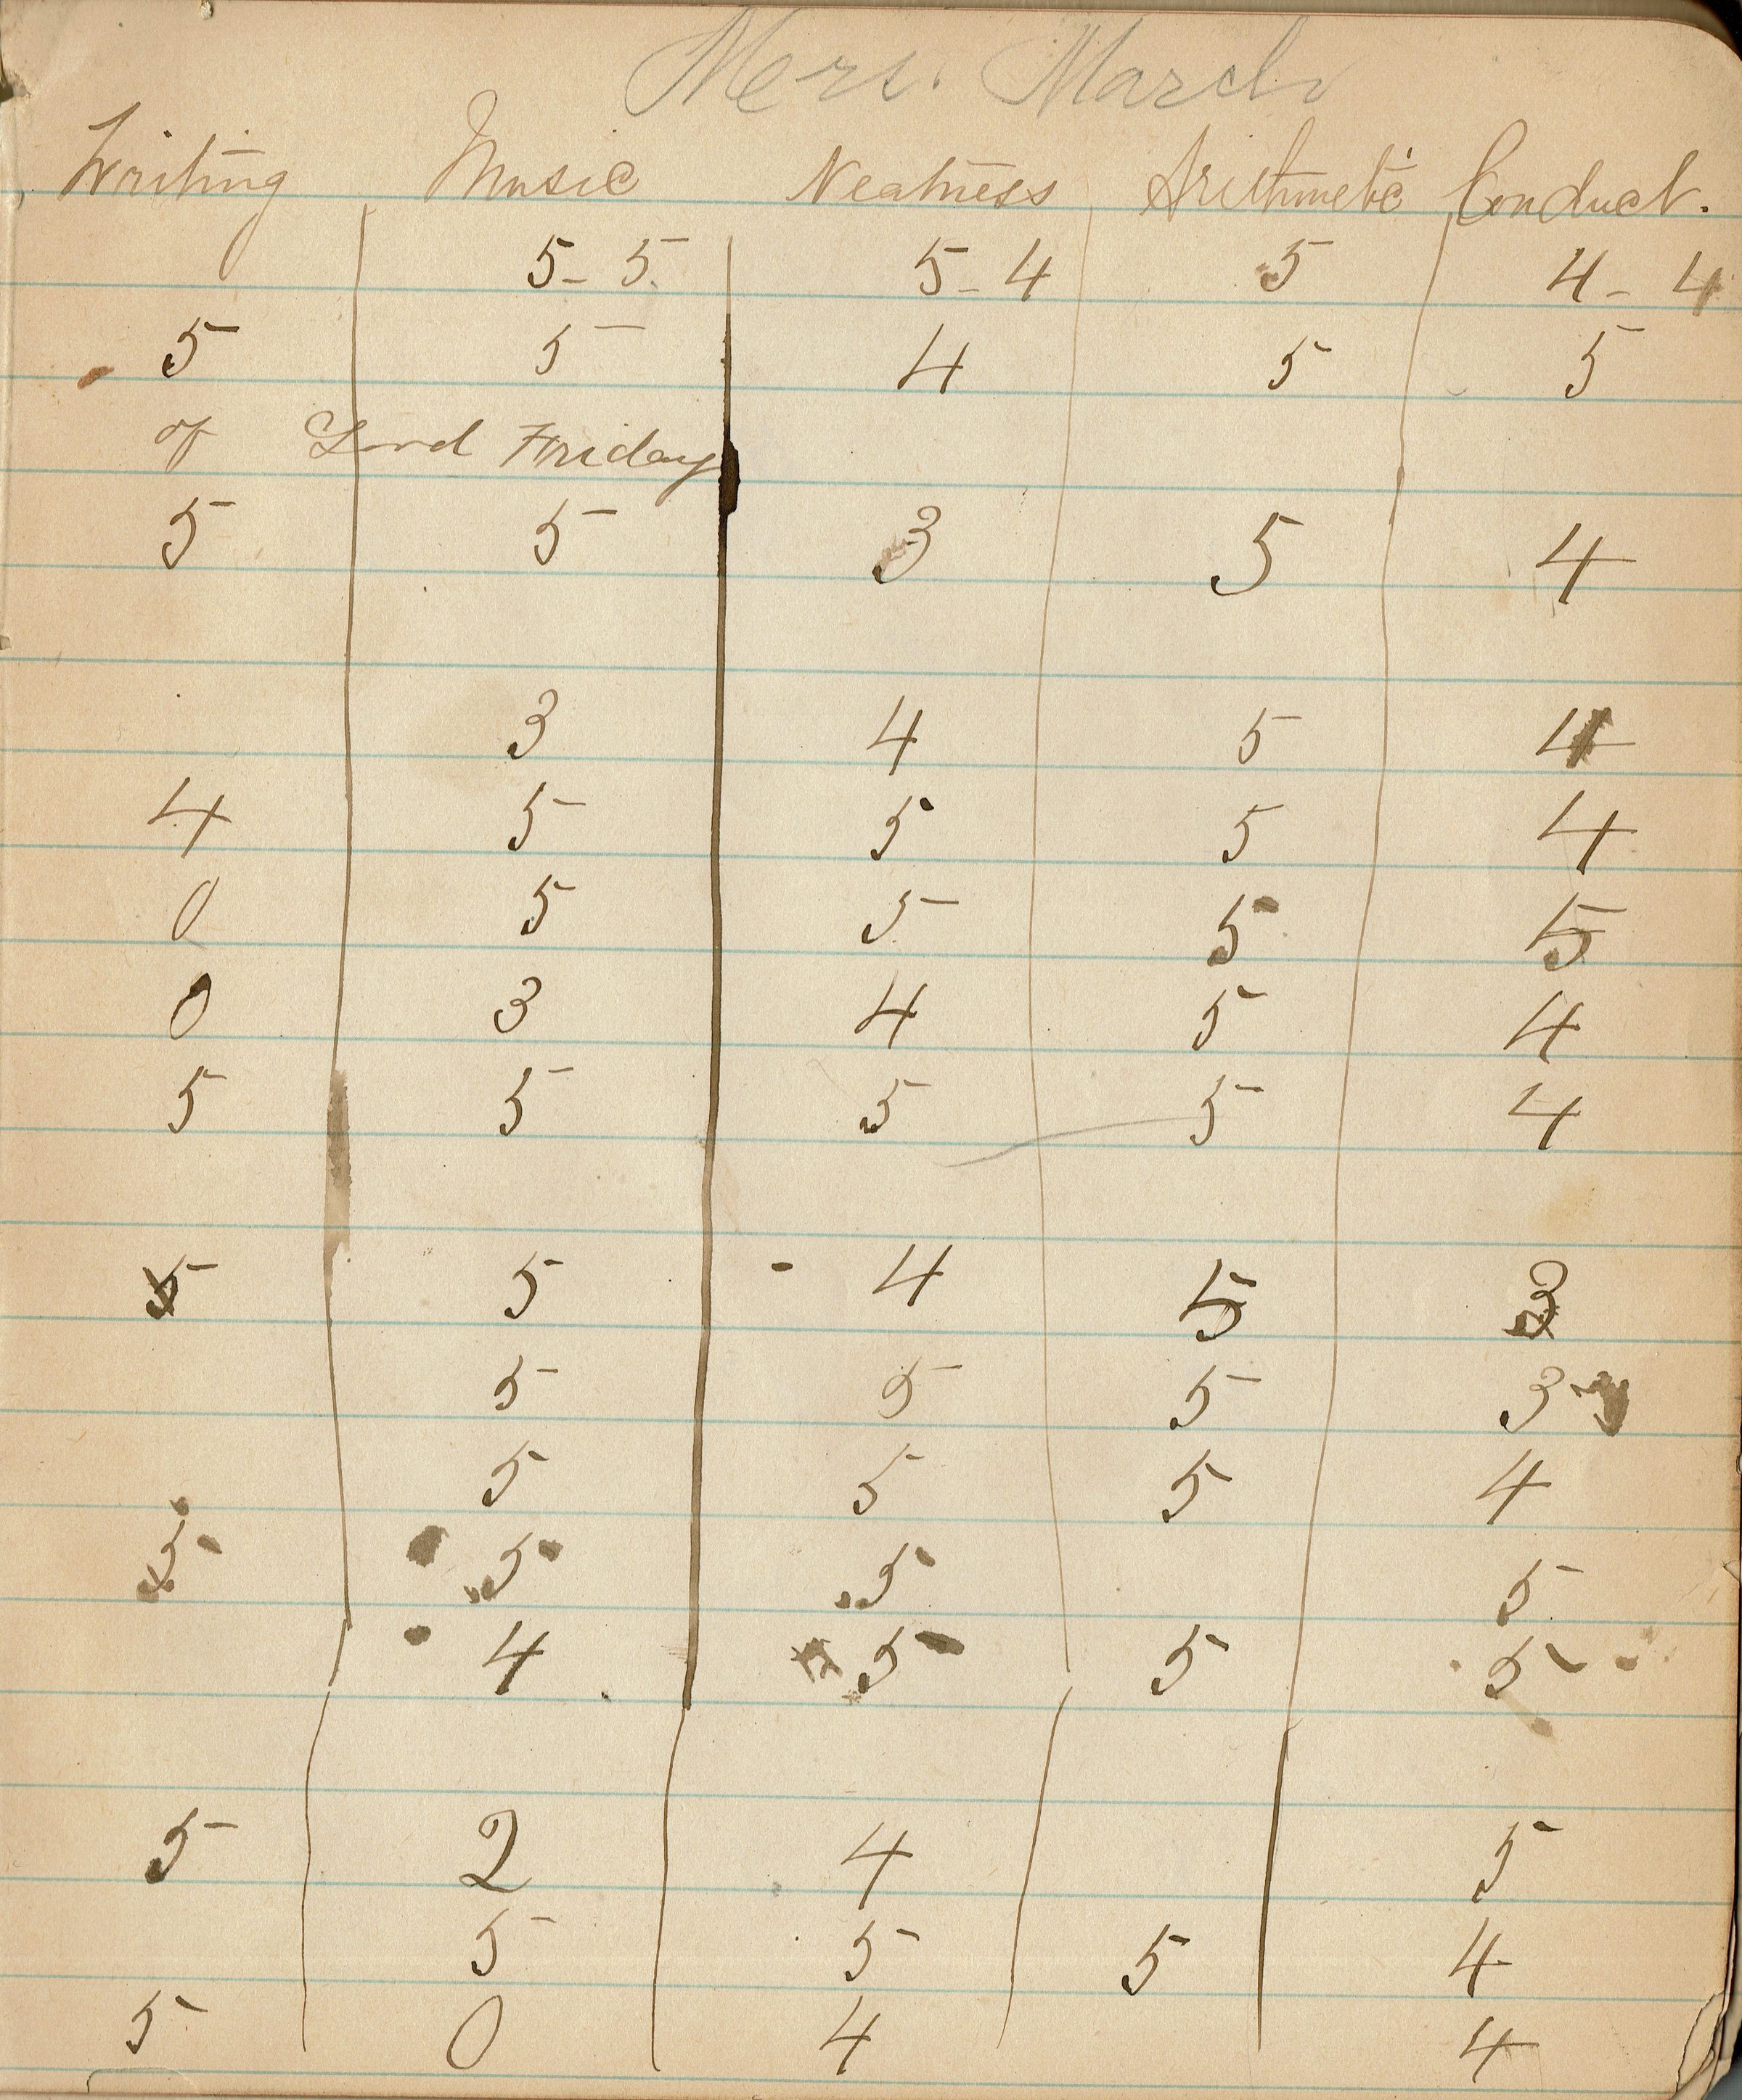 Mers. March
Writing Music Neatness Arithmetic Conduct.
5-5 5-4 5 4-4
5 5 4 5 5
of Good Friday
5 5 3 5 4
3 4 5 4
4 5 5 5 4
0 5 5 5 5
0 3 4 5 4
5 5 5 5 4
5 5 4 5 3
5 5 5 3
5 5 5 4
5 5 5 5
4 5 5 5
5 2 4 5
5 5 5 4
5 0 4 4